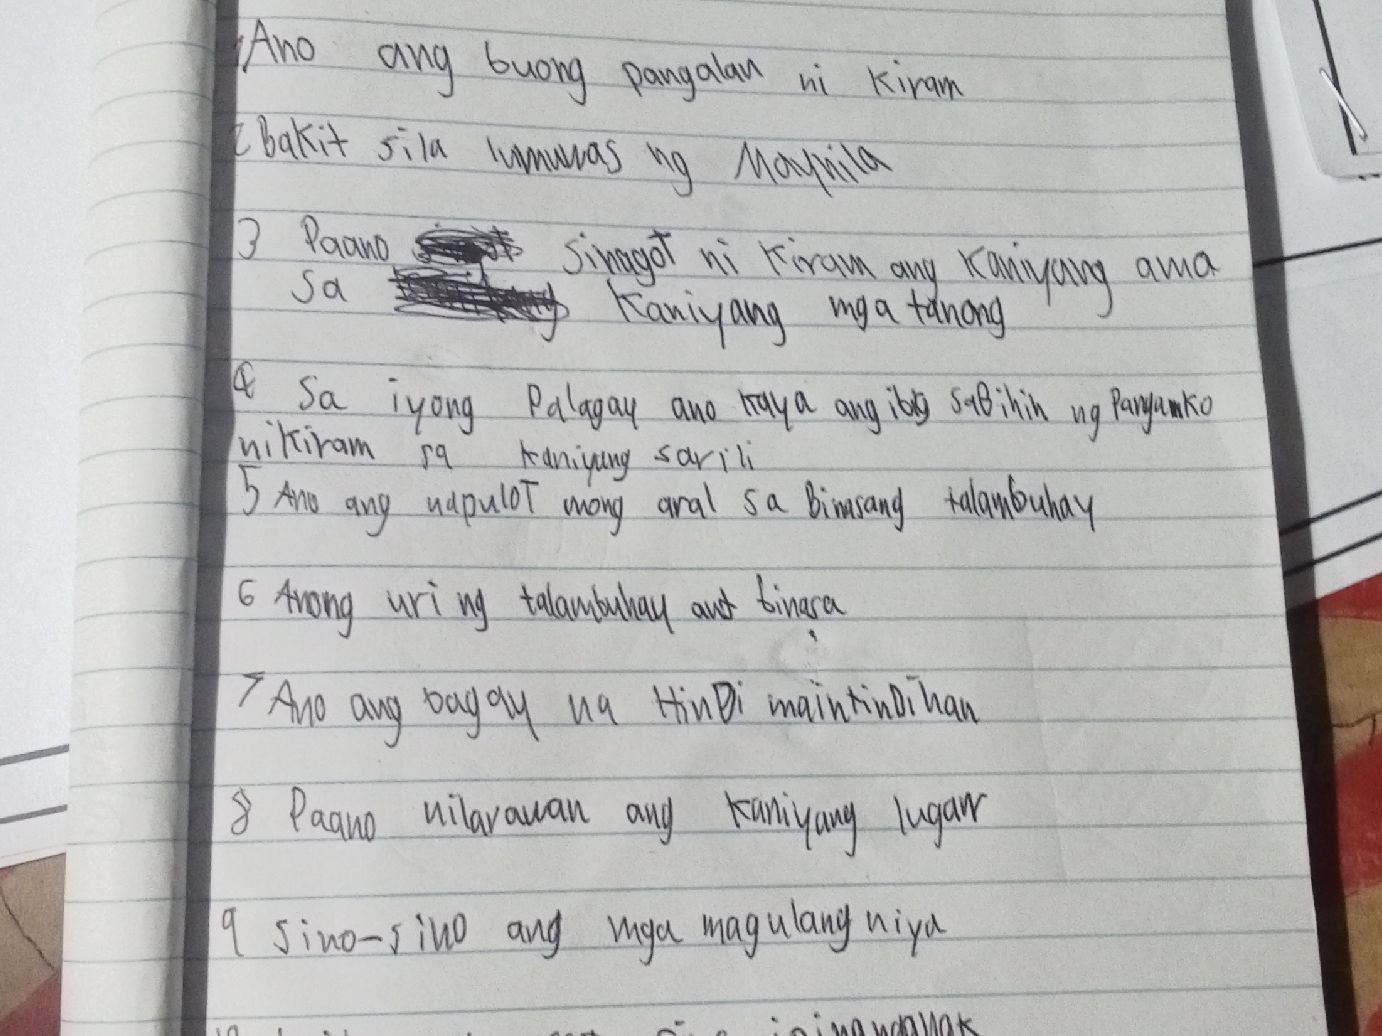 1 Ano ang buong pangalan ni Kiram
2 Bakit sila lumuwas ng Maynila
3 Paano sinagot ni Kiram ang Kaniyang ama
sa Kaniyang mga tanong
4 Sa iyong Palagay ano kaya ang ibig sabihin ng Pangamko
ni Kiram sa kaniyang sarili
5 Ano ang napulot mong aral sa Binasang talambuhay
6 Anong uri ng talambuhay ang binasa
7 Ano ang bagay na HinDi maintinDihan
8 Paano nilarawan ang kaniyang lugar
9 Sino-sino ang mga magulang niya